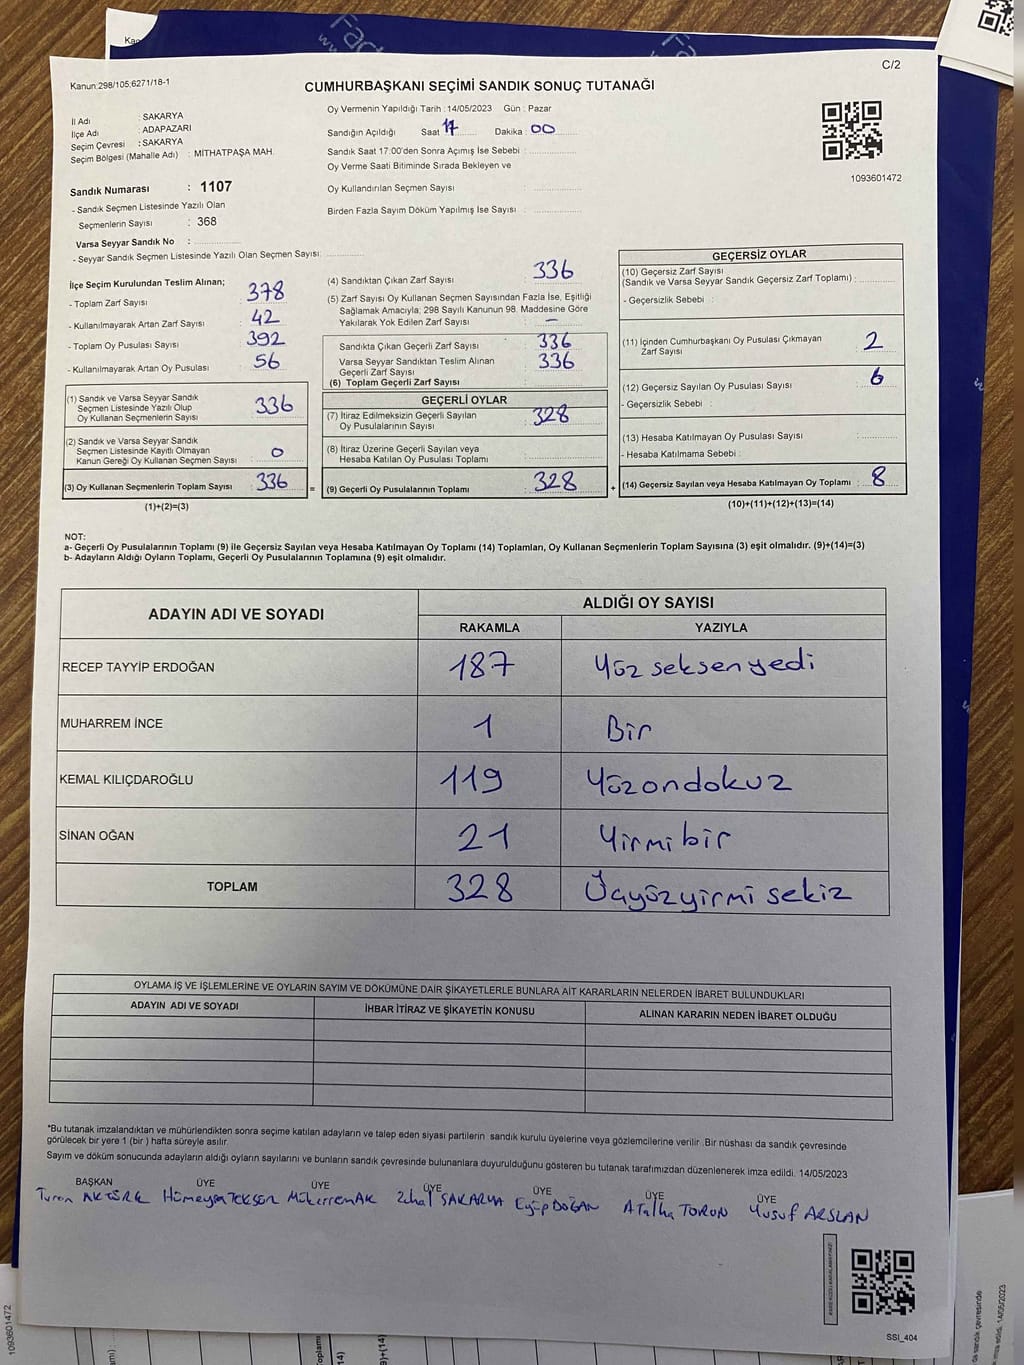 C/2
Kanun:298/105,6271/18-1
CUMHURBAŞKANI SEÇİMİ SANDIK SONUÇ TUTANAĞI
İl Adı : SAKARYA
İlçe Adı : ADAPAZARI
Seçim Çevresi : SAKARYA
Seçim Bölgesi (Mahalle Adı) : MİTHATPAŞA MAH.
Oy Vermenin Yapıldığı Tarih : 14/05/2023 Gün : Pazar
Sandığın Açıldığı Saat 17 Dakika : 00
Sandık Saat 17:00'den Sonra Açımış İse Sebebi :
Oy Verme Saati Bitiminde Sırada Bekleyen ve
Oy Kullandırılan Seçmen Sayısı :
Birden Fazla Sayım Döküm Yapılmış İse Sayısı :
1093601472
Sandık Numarası : 1107
- Sandık Seçmen Listesinde Yazılı Olan
Seçmenlerin Sayısı : 368
Varsa Seyyar Sandık No :
- Seyyar Sandık Seçmen Listesinde Yazılı Olan Seçmen Sayısı:
İlçe Seçim Kurulundan Teslim Alınan;
- Toplam Zarf Sayısı : 378
- Kullanılmayarak Artan Zarf Sayısı : 42
- Toplam Oy Pusulası Sayısı : 392
- Kullanılmayarak Artan Oy Pusulası : 56
(1) Sandık ve Varsa Seyyar Sandık
Seçmen Listesinde Yazılı Olup
Oy Kullanan Seçmenlerin Sayısı : 336
(2) Sandık ve Varsa Seyyar Sandık
Seçmen Listesinde Kayıtlı Olmayan
Kanun Gereği Oy Kullanan Seçmen Sayısı : 0
(3) Oy Kullanan Seçmenlerin Toplam Sayısı : 336
(1)+(2)=(3)
=
(4) Sandıktan Çıkan Zarf Sayısı : 336
(5) Zarf Sayısı Oy Kullanan Seçmen Sayısından Fazla İse, Eşitliği
Sağlamak Amacıyla; 298 Sayılı Kanunun 98. Maddesine Göre
Yakılarak Yok Edilen Zarf Sayısı : –
Sandıkta Çıkan Geçerli Zarf Sayısı : 336
Varsa Seyyar Sandıktan Teslim Alınan
Geçerli Zarf Sayısı : 336
(6) Toplam Geçerli Zarf Sayısı :
GEÇERLİ OYLAR
(7) İtiraz Edilmeksizin Geçerli Sayılan
Oy Pusulalarının Sayısı : 328
(8) İtiraz Üzerine Geçerli Sayılan veya
Hesaba Katılan Oy Pusulası Toplamı :
(9) Geçerli Oy Pusulalarının Toplamı : 328
+
GEÇERSİZ OYLAR
(10) Geçersiz Zarf Sayısı
(Sandık ve Varsa Seyyar Sandık Geçersiz Zarf Toplamı) :
- Geçersizlik Sebebi :
(11) İçinden Cumhurbaşkanı Oy Pusulası Çıkmayan
Zarf Sayısı : 2
(12) Geçersiz Sayılan Oy Pusulası Sayısı : 6
- Geçersizlik Sebebi :
(13) Hesaba Katılmayan Oy Pusulası Sayısı :
- Hesaba Katılmama Sebebi :
(14) Geçersiz Sayılan veya Hesaba Katılmayan Oy Toplamı : 8
(10)+(11)+(12)+(13)=(14)
NOT:
a- Geçerli Oy Pusulalarının Toplamı (9) ile Geçersiz Sayılan veya Hesaba Katılmayan Oy Toplamı (14) Toplamları, Oy Kullanan Seçmenlerin Toplam Sayısına (3) eşit olmalıdır. (9)+(14)=(3)
b- Adayların Aldığı Oyların Toplamı, Geçerli Oy Pusulalarının Toplamına (9) eşit olmalıdır.
ADAYIN ADI VE SOYADI ALDIĞI OY SAYISI
RAKAMLA YAZIYLA
RECEP TAYYİP ERDOĞAN 187 Yüz seksen yedi
MUHARREM İNCE 1 Bir
KEMAL KILIÇDAROĞLU 119 Yüzondokuz
SİNAN OĞAN 21 Yirmi bir
TOPLAM 328 Üçyüzyirmi sekiz
OYLAMA İŞ VE İŞLEMLERİNE VE OYLARIN SAYIM VE DÖKÜMÜNE DAİR ŞİKAYETLERLE BUNLARA AİT KARARLARIN NELERDEN İBARET BULUNDUKLARI
ADAYIN ADI VE SOYADI İHBAR İTİRAZ VE ŞİKAYETİN KONUSU ALINAN KARARIN NEDEN İBARET OLDUĞU
*Bu tutanak imzalandıktan ve mühürlendikten sonra seçime katılan adayların ve talep eden siyasi partilerin sandık kurulu üyelerine veya gözlemcilerine verilir .Bir nüshası da sandık çevresinde
görülecek bir yere 1 (bir ) hafta süreyle asılır.
Sayım ve döküm sonucunda adayların aldığı oyların sayılarını ve bunların sandık çevresinde bulunanlara duyurulduğunu gösteren bu tutanak tarafımızdan düzenlenerek imza edildi. 14/05/2023
BAŞKAN ÜYE ÜYE ÜYE ÜYE ÜYE ÜYE
Turan AKTÜRK Hümeysa TEKSEN Mükerrem AK Zuhal SAKARYA Eyüp DOĞAN A Talha TORUN Yusuf ARSLAN
SSI_404
1093601472